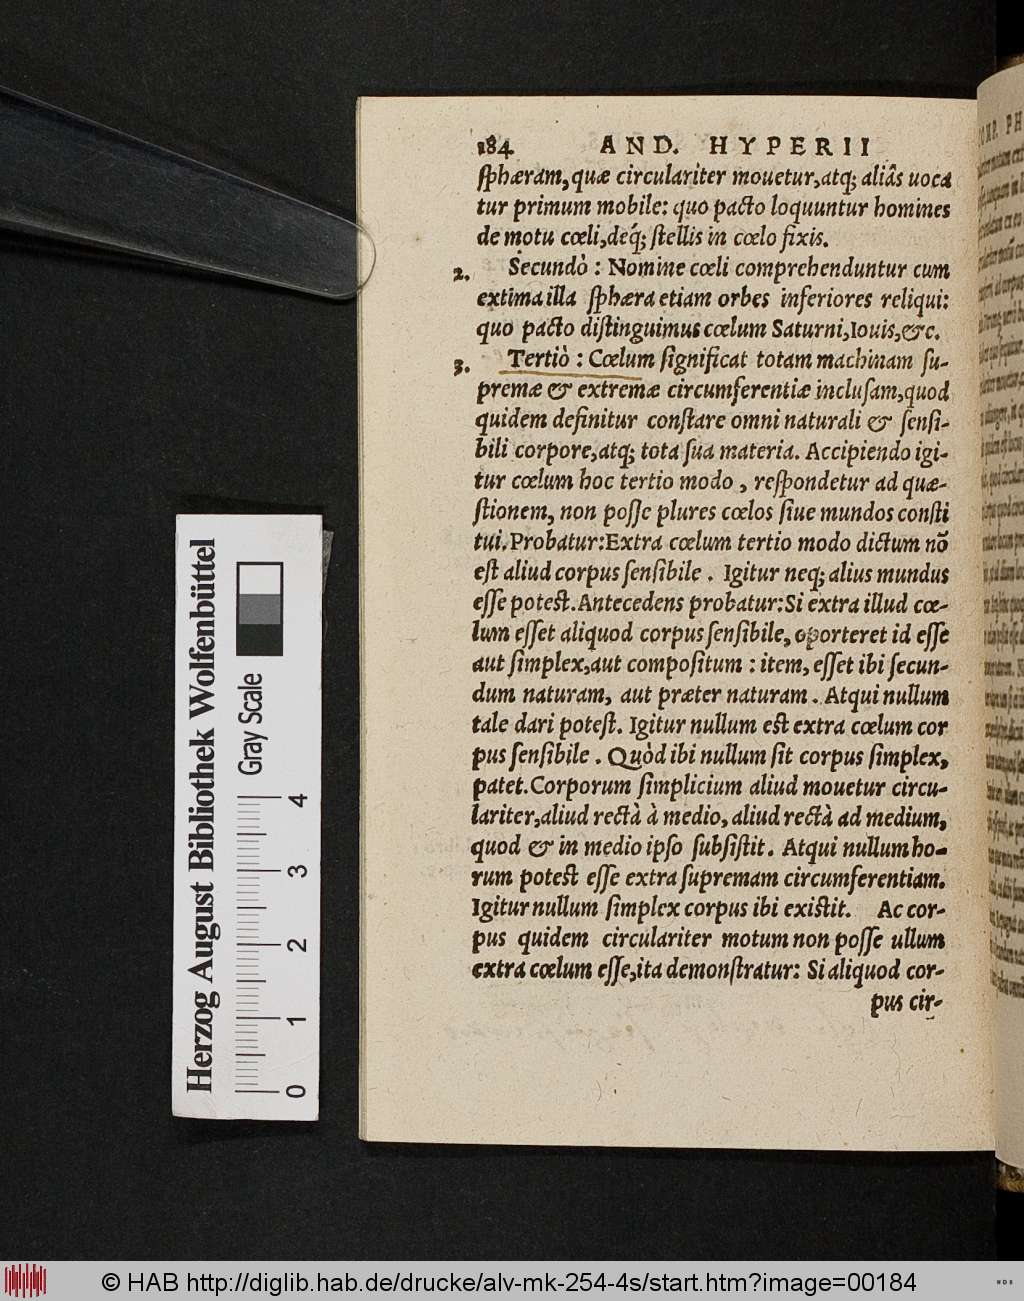 184 AND. HYPERII
ſphæram, quæ circulariter mouetur, atq; aliâs uoca
tur primum mobile: quo pacto loquuntur homines
de motu cœli, deq́; ſtellis in cœlo fixis.
2. Secundò : Nomine cœli comprehenduntur cum
extima illa ſphæra etiam orbes inferiores reliqui:
quo pacto diſtinguimus cœlum Saturni, Iouis, &c.
3. Tertiò : Cœlum ſignificat totam machinam ſu-
premæ & extremæ circumferentiæ incluſam, quod
quidem definitur conſtare omni naturali & ſenſi-
bili corpore, atq; tota ſua materia. Accipiendo igi-
tur cœlum hoc tertio modo, reſpondetur ad quæ-
ſtionem, non poſſe plures cœlos ſiue mundos conſti
tui. Probatur: Extra cœlum tertio modo dictum nõ
eſt aliud corpus ſenſibile. Igitur neq; alius mundus
eſſe poteſt. Antecedens probatur: Si extra illud cœ-
lum eſſet aliquod corpus ſenſibile, oporteret id eſſe
aut ſimplex, aut compoſitum : item, eſſet ibi ſecun-
dum naturam, aut præter naturam. Atqui nullum
tale dari poteſt. Igitur nullum eſt extra cœlum cor
pus ſenſibile. Quòd ibi nullum ſit corpus ſimplex,
patet. Corporum ſimplicium aliud mouetur circu-
lariter, aliud rectà à medio, aliud rectà ad medium,
quod & in medio ipſo ſubſiſtit. Atqui nullum ho-
rum poteſt eſſe extra ſupremam circumferentiam.
Igitur nullum ſimplex corpus ibi exiſtit. Ac cor-
pus quidem circulariter motum non poſſe ullum
extra cœlum eſſe, ita demonſtratur: Si aliquod cor-
pus cir-
Herzog August Bibliothek Wolfenbüttel
Gray Scale
0 1 2 3 4
© HAB http://diglib.hab.de/drucke/alv-mk-254-4s/start.htm?image=00184